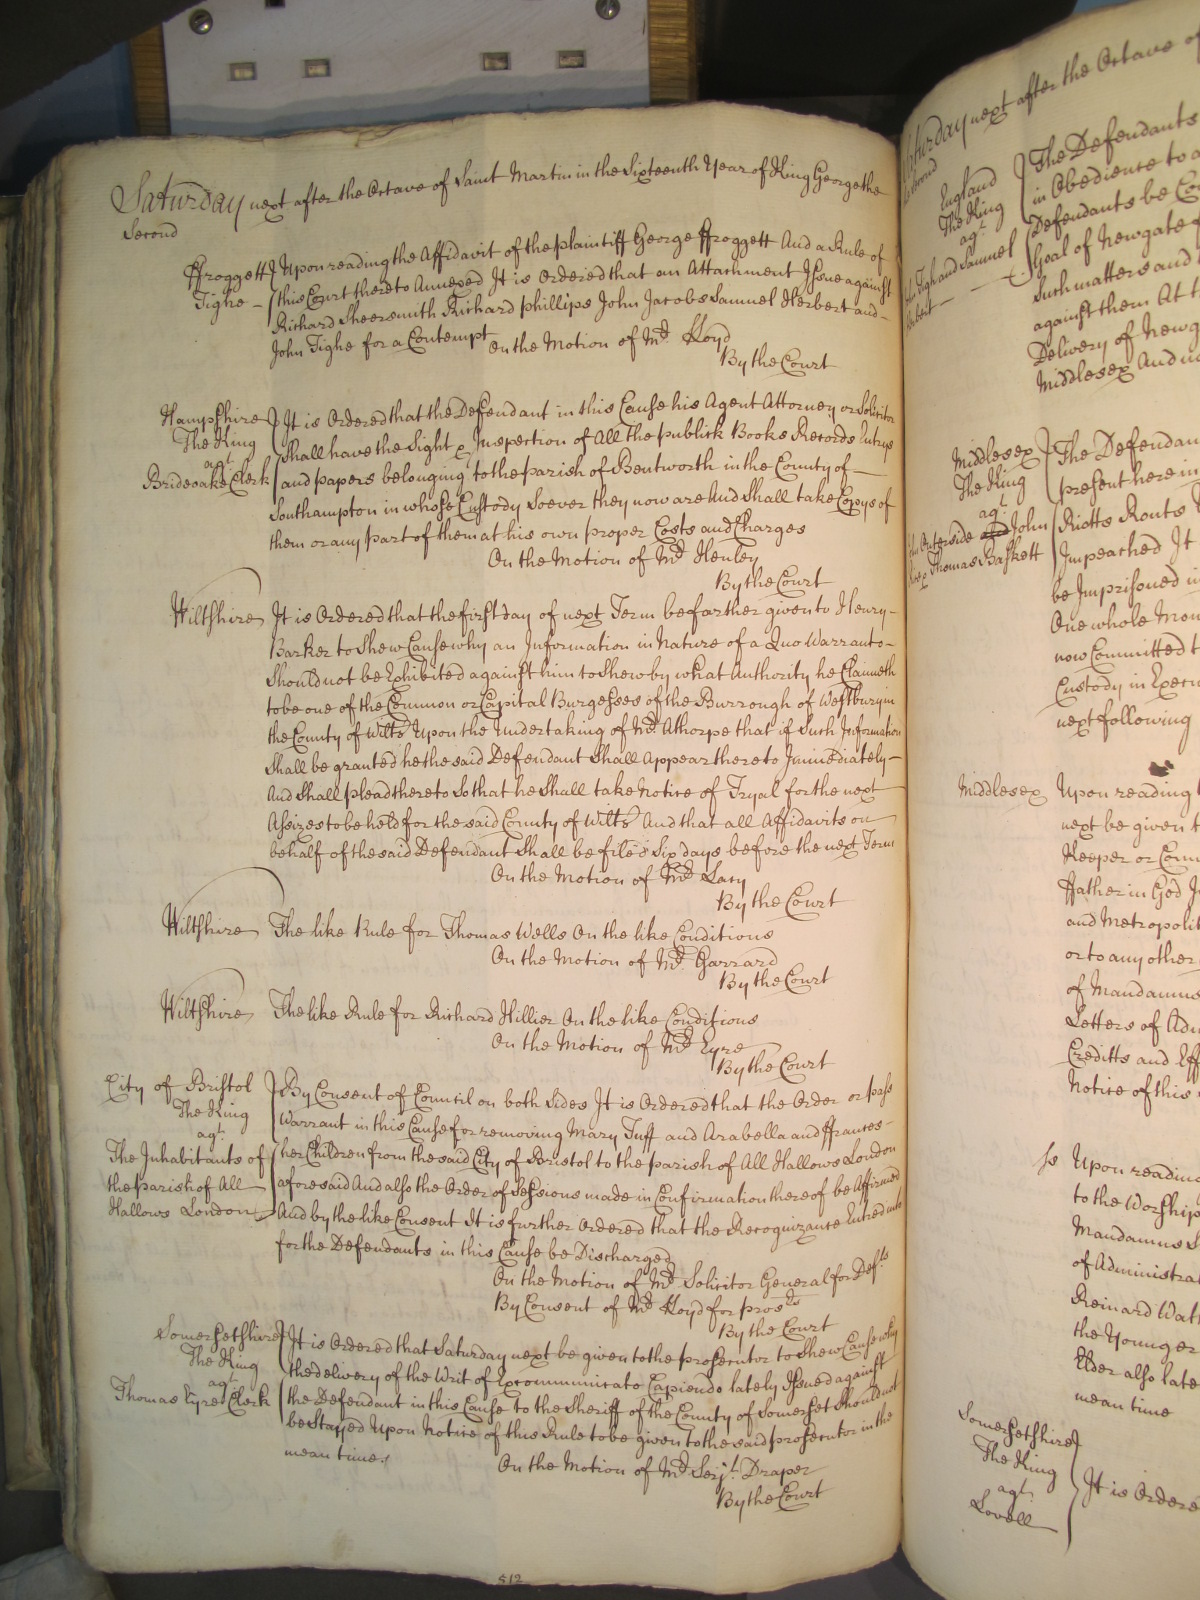 Saturday next after the Octave of Saint Martin in the Sixteenth Year of King George the
Second
Ffroggett
Tighe
Upon reading the Affidavit of the plaintiff George Ffroggett And a Rule of
this Court thereto Annexed It is Ordered that an Attachment Issue against
Richard Sheersmith Richard phillips John Jacobs Samuel Herbert and
John Tighe for a Contempt On the Motion of Mr. Lloyd
By the Court
Hampshire
The King
agt.
Brideoake Clerk
It is Ordered that the Defendant in this Cause his Agent Attorney or Solicitor
Shall have the Sight & Inspection of All the publick Books Records Entrys
and papers belonging to the parish of Bentworth in the County of
Southampton in whose Custody Soever they now are And Shall take Copys of
them or any part of them at his own proper Costs and Charges
On the Motion of Mr. Henley
By the Court
Wiltshire
It is Ordered that the first day of next Term be farther given to Henry
Barker to Shew Cause why an Information in Nature of a Quo Warranto
Should not be Exhibited against him to shew by what Authority he Claimeth
to be one of the Common or Capital Burgesses of the Burrough of Westbury in
the County of Wilts Upon the Undertaking of Mr. Athorpe that if Such Information
Shall be granted he the said Defendant Shall Appear thereto Immediately
And Shall plead thereto So that he Shall take Notice of Tryal for the next
Assizes to be held for the said County of Wilts And that all Affidavits on
behalf of the said Defendant Shall be filed Six days before the next Term
On the Motion of Mr. Lacy
By the Court
Wiltshire
The like Rule for Thomas Wells On the like Conditions
On the Motion of Mr. Garrard
By the Court
Wiltshire
The like Rule for Richard Hillier On the like Conditions
On the Motion of Mr. Eyre
By the Court
City of Bristol
The King
agt.
The Inhabitants of
the parish of All
Hallows London
By Consent of Council on both Sides It is Ordered that the Order or pass
Warrant in this Cause for removing Mary Tuff and Arabella and Ffrances
her Children from the said City of Bristol to the parish of All Hallows London
aforesaid And also the Order of Sessions made in Confirmation thereof be Affirmed
And by the like Consent It is further Ordered that the Recognizance Entred into
for the Defendants in this Cause be Discharged
On the Motion of Mr. Solicitor General for Defts
By Consent of Mr. Lloyd for prosrs
By the Court
Somersetshire
The King
agt.
Thomas Eyre Clerk
It is Ordered that Saturday next be given to the prosecutor to Shew Cause why
the delivery of the Writ of Excommunicato Capiendo lately Issued against
the Defendant in this Cause to the Sheriff of the County of Somerset Should not
be Stayed Upon Notice of this Rule to be given to the said prosecutor in the
mean time
On the Motion of Mr. Serjt. Draper
By the Court
512
Saturday next after the Octave of
Second
England
The King
agt.
Tigh and Samuel
Herbert
The Defendants
in Obedience to a
Defendants be Co
Goal of Newgate
Such matters and
against them At t
Delivery of Newg
Middlesex And
Middlesex
The King
agt.
John
Thomas Baskett
The Defendan
present here in
Riotts Routs
Impeached It
be Imprisoned in
One whole Mon
now Committed t
Custody in Execu
next following
Middlesex
Upon reading
next be given t
Keeper or Comm
Ffather in God
and Metropolit
or to any other
of Mandamus
Letters of Adm
Creditts and Eff
Notice of this
Upon reading
to the Worship
Mandamus
of Administrat
Reinard Wat
the Younger
Elder also late
mean time
Somersetshire
The King
agt.
Lovell
It is Ordere